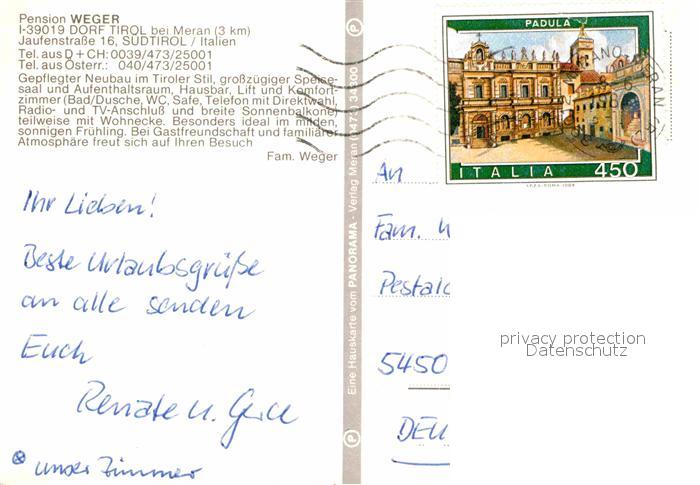 Pension WEGER
I-39019 DORF TIROL bei Meran (3 km)
Jaufenstraße 16, SÜDTIROL / Italien
Tel. aus D + CH: 0039/473/25001
Tel. aus Österr.: 040/473/25001
Gepflegter Neubau im Tiroler Stil, großzügiger Speise-
saal und Aufenthaltsraum, Hausbar, Lift und Komfort-
zimmer (Bad/Dusche, WC, Safe, Telefon mit Direktwahl,
Radio- und TV-Anschluß und breite Sonnenbalkone)
teilweise mit Wohnecke. Besonders ideal im milden,
sonnigen Frühling. Bei Gastfreundschaft und familiärer
Atmosphäre freut sich auf Ihren Besuch
Fam. Weger
Ihr Lieben!
Beste Urlaubsgrüße
an alle senden
Euch
Renate u.
unser Zimmer
Eine Hauskarte vom PANORAMA - Verlag Meran
PADULA
ITALIA 450
An
Fam.
Pestalo
5450
DEU
privacy protection
Datenschutz